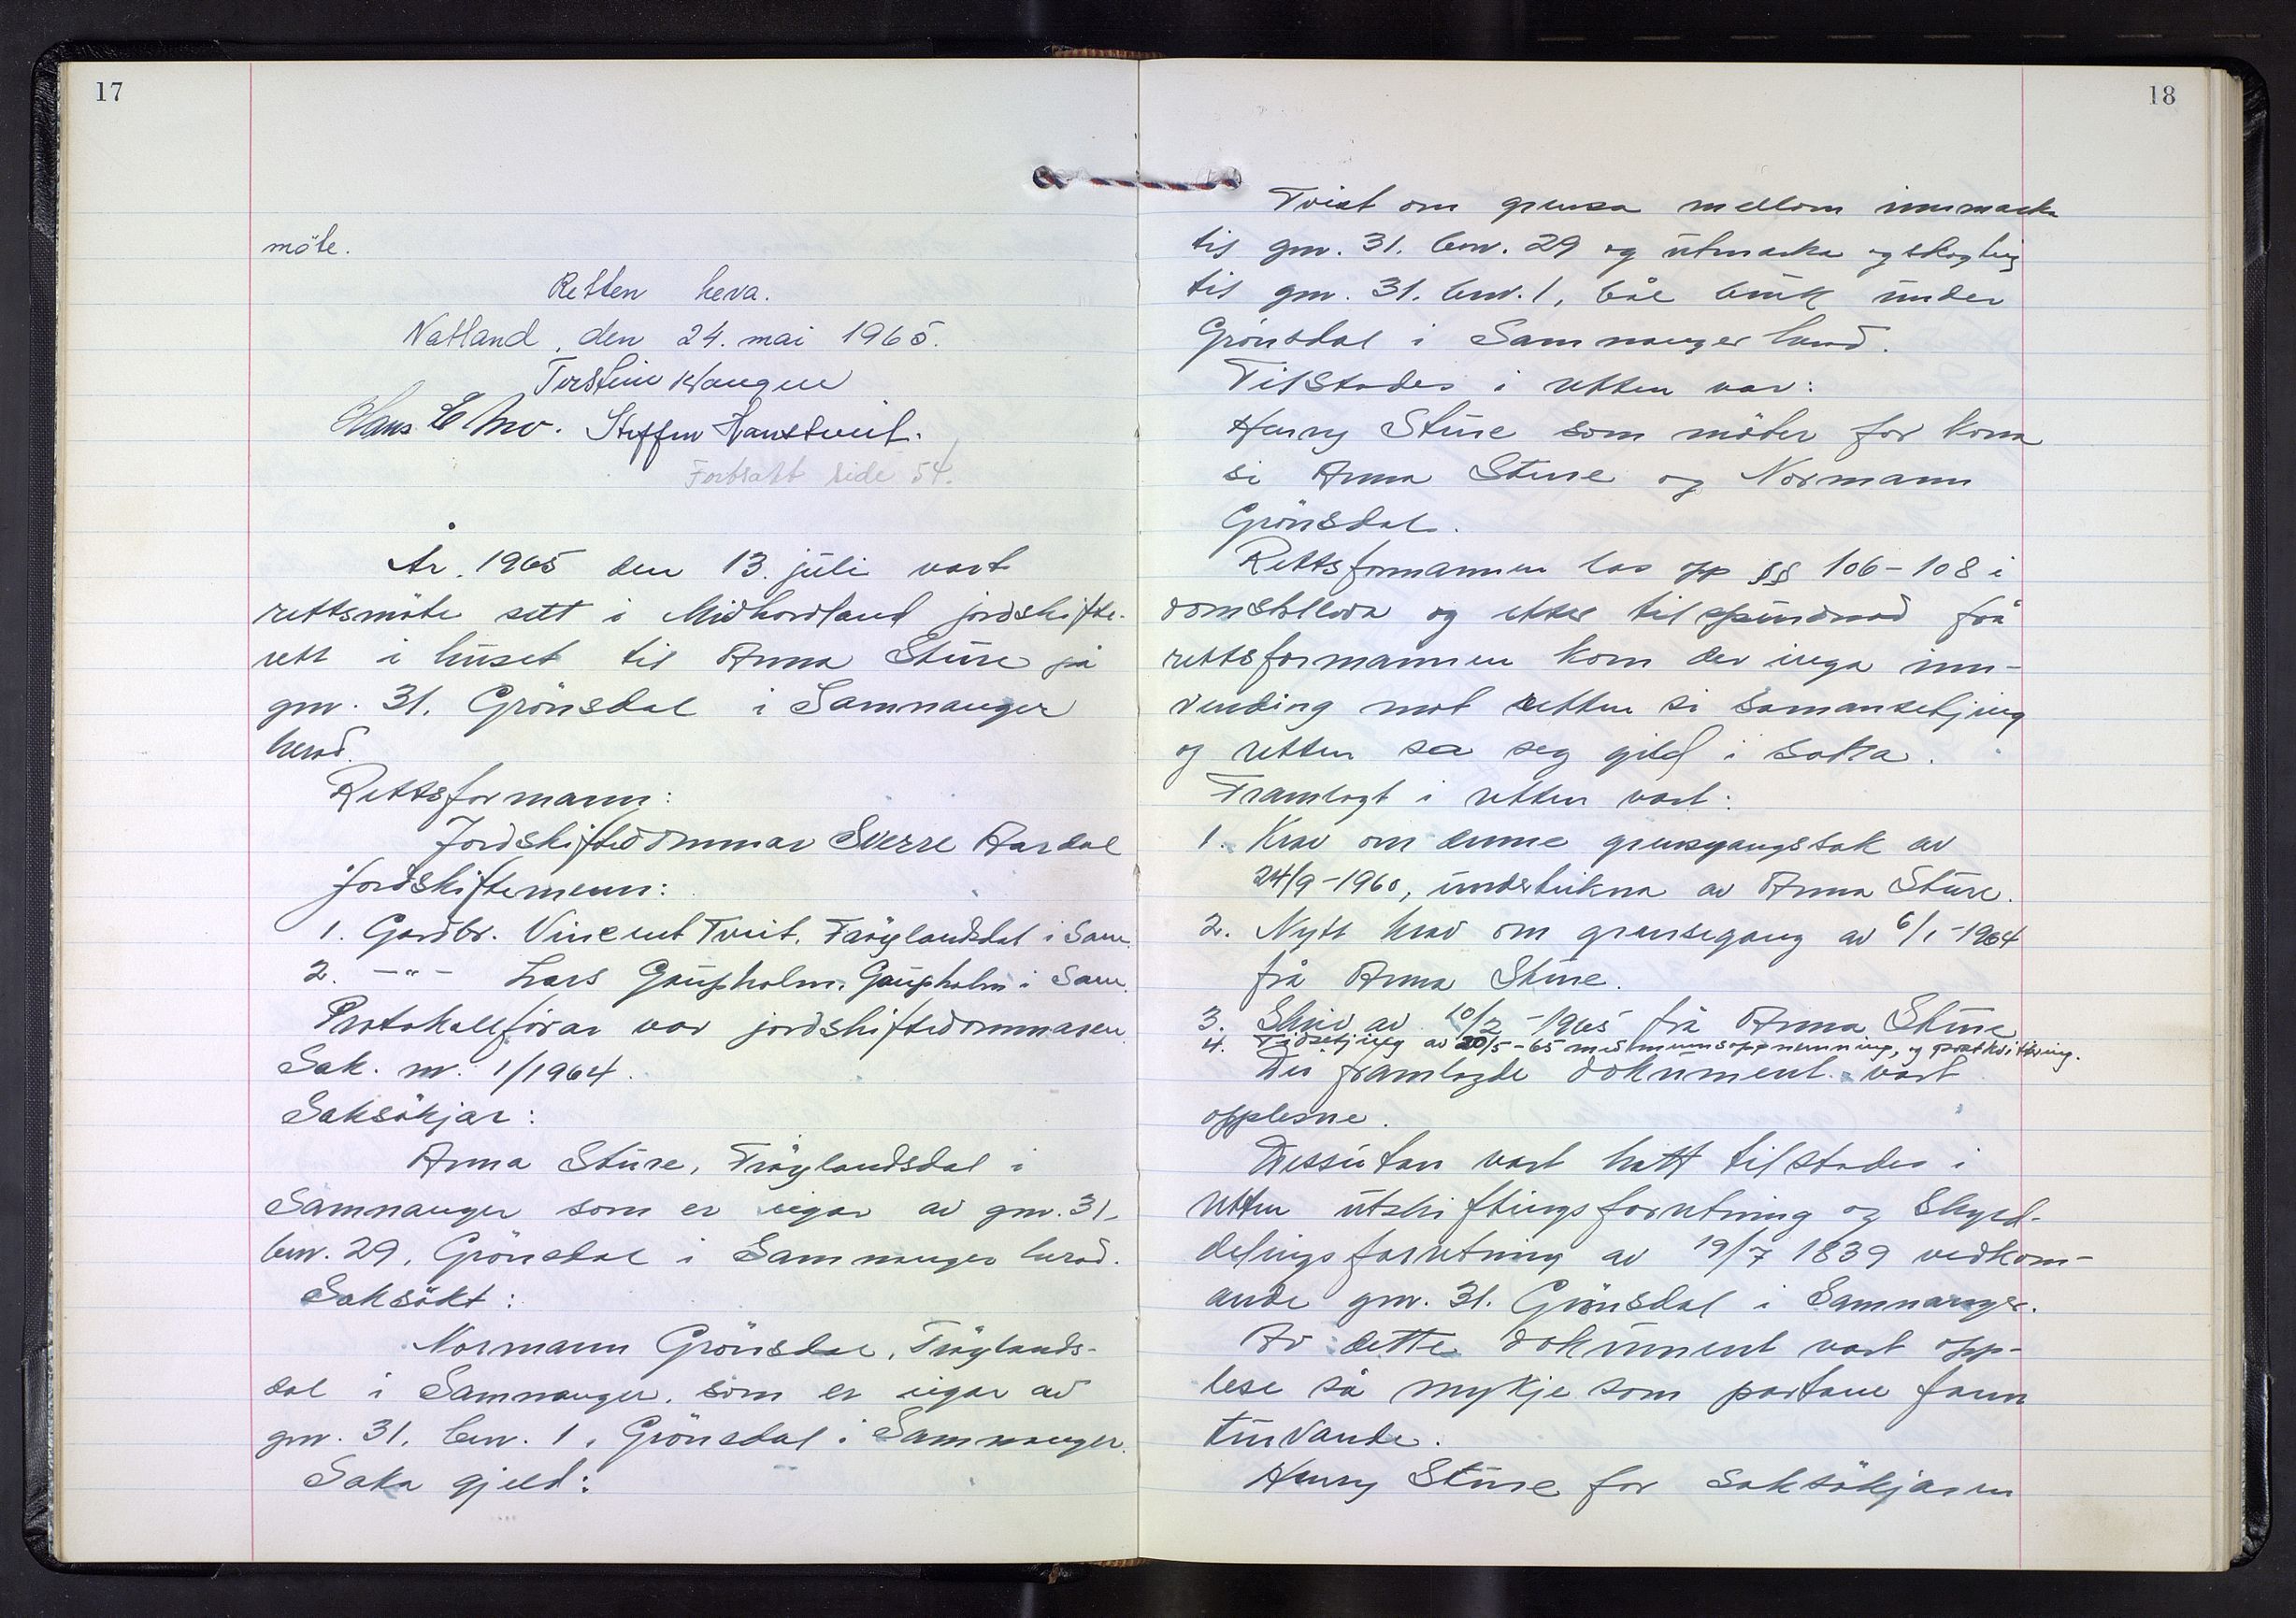 17
möte.
Retten heva.
Natland, den 24. mai 1965.
Torstein Haugen
Hans E Mo. Steffen Hanstveit.
Fortsatt side 54.
År. 1965 den 13. juli vart
rettsmöte sett i Midhordland jordskifte-
rett i huset til Anna Sture på
gnr. 31. Grönsdal i Samnanger
herad.
Rettsformann:
Jordskiftedommar Sverre Aardal
Jordskiftemenn:
1. Gardbr. Vincent Tveit, Fröylandsdal i Sam.
2. -"- Lars Gaupholm, Gaupholm i Sam.
Protokollförar var jordskiftedommaren.
Sak. nr. 1/1964.
Saksökjar:
Anna Sture, Fröylandsdal i
Samnanger som er eigar av gnr. 31,
bnr. 29, Grönsdal i Samnanger herad.
Saksökt:
Normann Grönsdal, Fröylands-
dal i Samnanger, som er eigar av
gnr. 31, bnr. 1, Grönsdal i Samnanger.
Saka gjeld:
18
Tvist om grensa mellom innmarka
til gnr. 31. bnr. 29 og utmarka og skogteig
til gnr. 31. bnr. 1, båe bruk under
Grönsdal i Samnanger herad.
Tilstades i retten var:
Henry Sture som möter for kona
si Anna Sture og Normann
Grönsdal.
Rettsformannen las opp §§ 106-108 i
domstollova og etter tilspurnad frå
rettsformannen kom der inga inn-
vending mot retten si samansetjing
og retten sa seg gild i saka.
Framlagt i retten vart:
1. Krav om denne grensegangssak av
24/9-1960, underteikna av Anna Sture.
2. Nytt krav om grensegang av 6/1-1964
frå Anna Sture.
3. Skriv av 10/2-1965 frå Anna Sture
4. Tilsetjing av 20/5-65 med mannsoppnemning, og postkvittering.
Dei framlagde dokument vart
opplesne.
Dessutan vart hatt tilstades i
retten utskiftingsforretning og skyld-
delingsforretning av 19/7 1839 vedkom-
ande gnr. 31. Grönsdal i Samnanger.
Av dette dokument vart opp-
lese så mykje som partane fann
turvande.
Henry Sture for saksökjaren